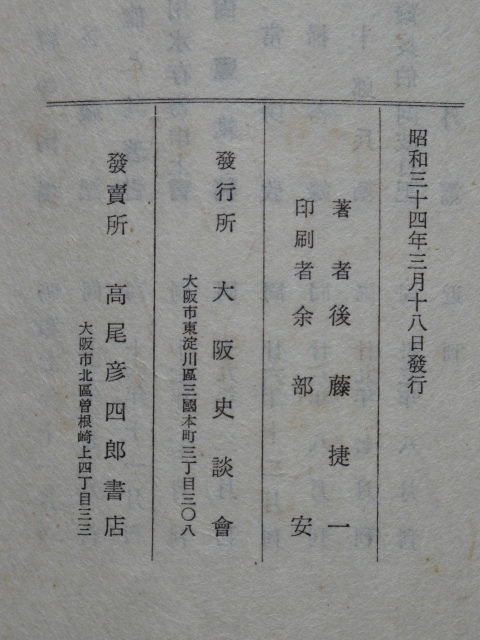 昭和三十四年三月十八日發行
著者後藤捷一
印刷者余部安
發行所 大阪史談會
大阪市東淀川區三國本町三丁目三〇八
發賣所 高尾彦四郎書店
大阪市北區曽根崎上四丁目三三